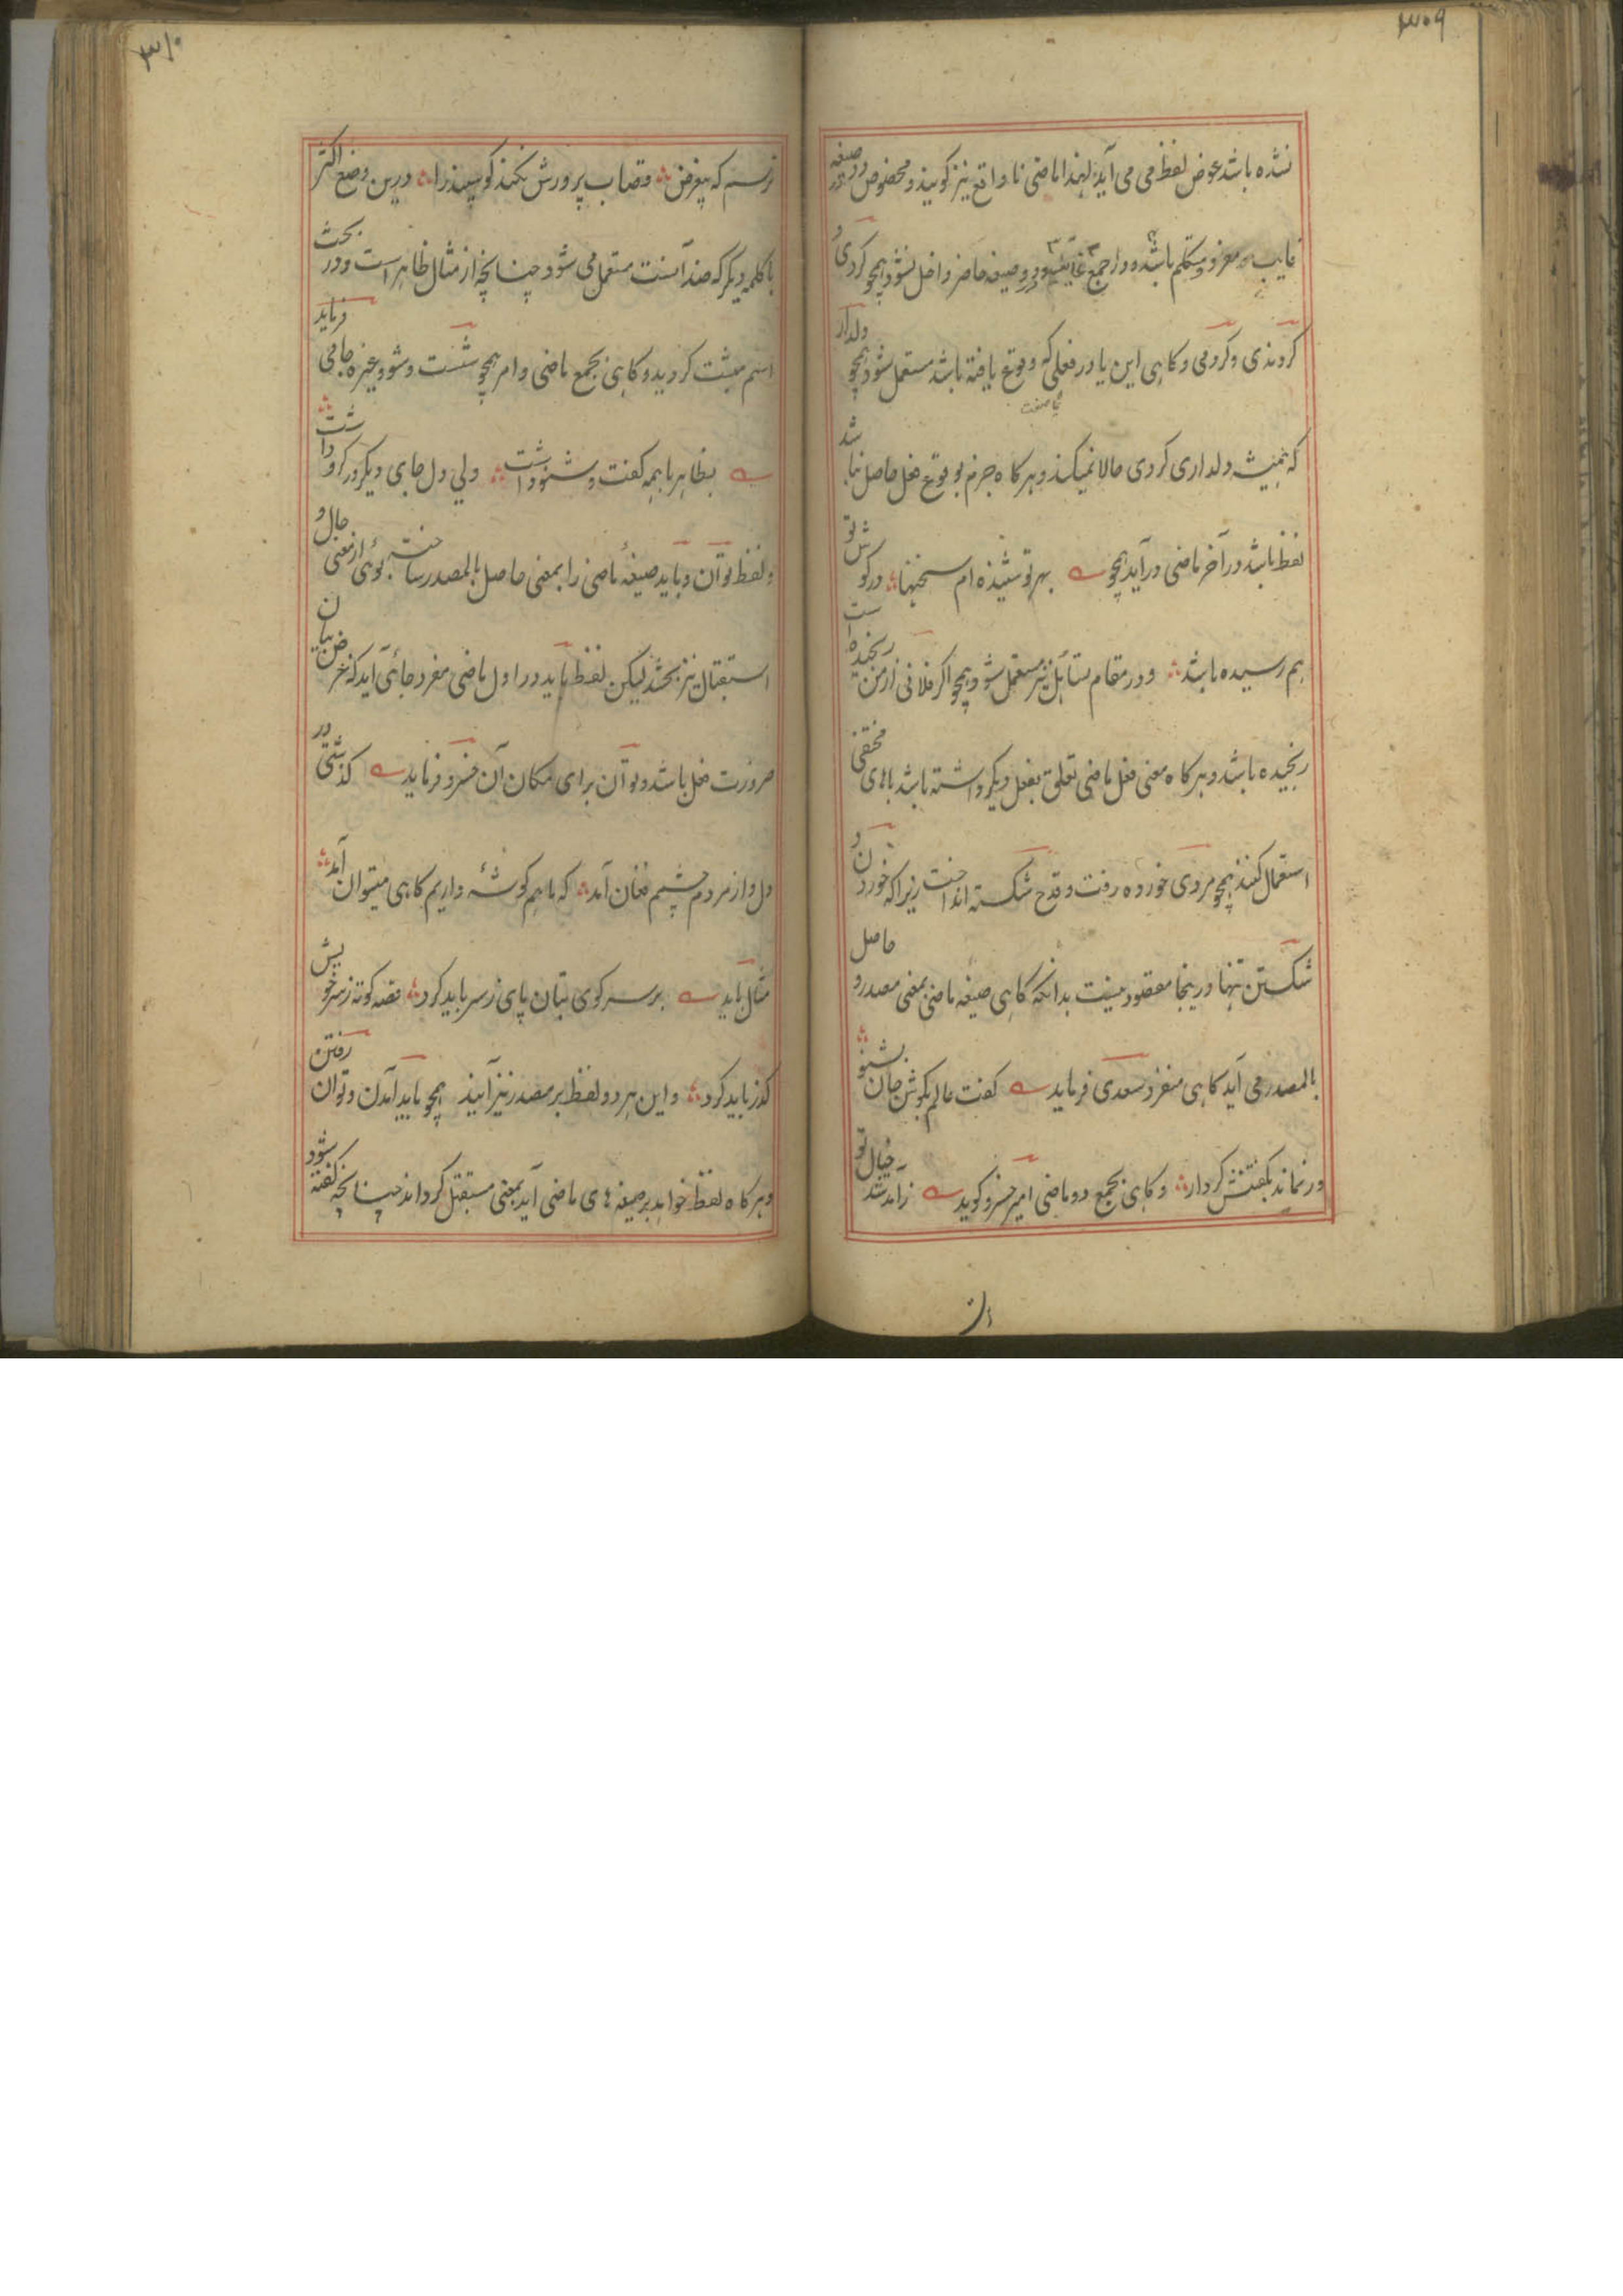 ۳۰۹
نشده باشد عوض لفظ می می آید لهذا ماضی نا واقع نیز گویند و مخصوص دو صیغه
غایب مفرد و متکلم باشد و در جمع غایب و در صیغه حاضر داخل نشود همچو کردی و
کردندی و کردمی و کاهی این یا در فعلی که وقوع یافته باشد مستعمل شود همچو دلدار
که همیشه دلداری کردی حالا نمیکند و هر کاه جزم بوقوع فعل حاصل نباشد
لفظ باشد در آخر ماضی در آید همچو بهر تو شنیده ام سخنها در کوش تو
هم رسیده باشد و در مقام تسائل نیز مستعمل شود همچو اکر فلانی از من رنجیده است
رنجیده باشد و هر کاه معنی فعل ماضی تعلق بفعل دیکر داشته باشد با های مختفی
استعمال کنند همچو مردی خورده رفت و قدح شکسته انداخت زیرا که خوردن و
شکستن تنها درینجا مقصود نیست بدانکه کاهی صیغه ماضی بمعنی مصدر و حاصل
بالمصدر می آید کاهی مفرد سعدی فرماید گفت عالم بکوش جان بشنو
ور نماند بکفتنش کردار و کاهی بجمع دو ماضی امیر خسرو کوید زآمد شد خیال تو
۳۱۰
ترسم که بیغرض قصاب پرورش نکند کوسپند را و درین وضع اکثر
با کلمه دیکر که ضد آنست مستعمل می شود چنانچه از مثال ظاهر است و در بحث
اسم مثبت کردید و کاهی بجمع ماضی و امر همچو شست و شو و غیره جامی فرماید
بظاهر با همه کفت و شنو داشت ولی دل جای دیکر در کرو داشت
و لفظ توان و باید صیغه ماضی را بمعنی حاصل بالمصدر ساخته بوئی از معنی حال و
استقبال نیز بخشد لیکن لفظ باید در اول ماضی مفرد جائی آید که غرض بیان
ضرورت فعل باشد و توان برای امکان آن خسرو فرماید کذشتی در
دل و از مردم چشمم فغان آمد که ما هم کوشهٔ داریم کاهی میتوان آمد
مثال باید بر سر کوی بتان پای ز سر باید کرد قصه کوته ز سر خویش
کذر باید کرد و این هر دو لفظ بر مصدر نیز آیند همچو باید آمدن و توان رفتن
و هر کاه لفظ خواهد بر صیغه های ماضی آید بمعنی مستقبل کرداند چنانچه کفته شود